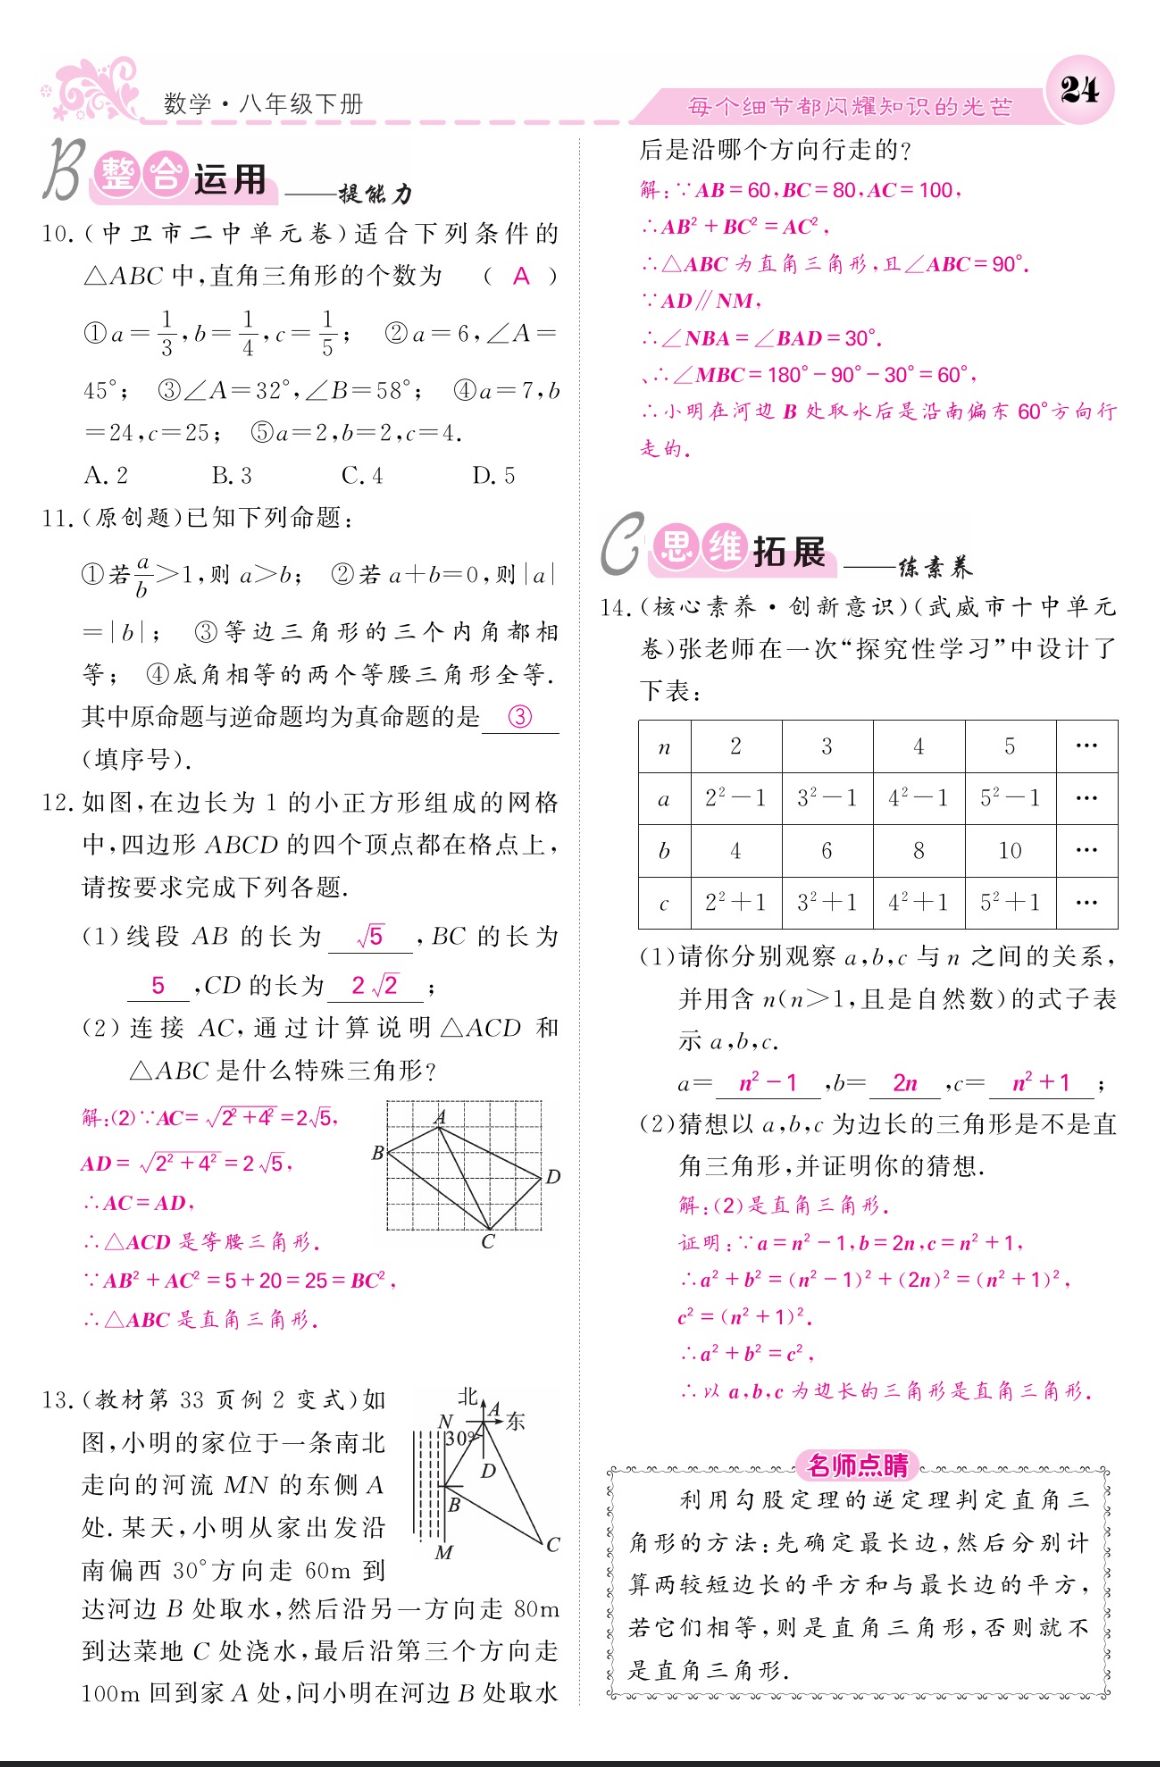 数学·八年级下册
每个细节都闪耀知识的光芒
24
B 整合运用——提能力
10.(中卫市二中单元卷)适合下列条件的
△ABC中,直角三角形的个数为 ( A )
①a=1/3,b=1/4,c=1/5; ②a=6,∠A=
45°; ③∠A=32°,∠B=58°; ④a=7,b
=24,c=25; ⑤a=2,b=2,c=4.
A. 2 B. 3 C. 4 D. 5
11.(原创题)已知下列命题:
①若a/b>1,则a>b; ②若a+b=0,则|a|
=|b|; ③等边三角形的三个内角都相
等; ④底角相等的两个等腰三角形全等.
其中原命题与逆命题均为真命题的是 ③
(填序号).
12.如图,在边长为1的小正方形组成的网格
中,四边形ABCD的四个顶点都在格点上,
请按要求完成下列各题.
(1)线段AB的长为 √5 ,BC的长为
5 ,CD的长为 2√2 ;
(2)连接AC,通过计算说明△ACD和
△ABC是什么特殊三角形?
解:(2)∵AC=√(2²+4²)=2√5,
AD=√(2²+4²)=2√5,
∴AC=AD,
∴△ACD是等腰三角形.
∵AB²+AC²=5+20=25=BC²,
∴△ABC是直角三角形.
A
B
D
C
13.(教材第33页例2变式)如
图,小明的家位于一条南北
走向的河流MN的东侧A
处.某天,小明从家出发沿
南偏西30°方向走60m到
达河边B处取水,然后沿另一方向走80m
到达菜地C处浇水,最后沿第三个方向走
100m回到家A处,问小明在河边B处取水
北
N A 东
30°
D
B
M C
后是沿哪个方向行走的?
解:∵AB=60,BC=80,AC=100,
∴AB²+BC²=AC²,
∴△ABC为直角三角形,且∠ABC=90°.
∵AD∥NM,
∴∠NBA=∠BAD=30°.
、∴∠MBC=180°-90°-30°=60°,
∴小明在河边B处取水后是沿南偏东60°方向行
走的.
C 思维拓展——练素养
14.(核心素养·创新意识)(武威市十中单元
卷)张老师在一次“探究性学习”中设计了
下表:
n 2 3 4 5 …
a 2²-1 3²-1 4²-1 5²-1 …
b 4 6 8 10 …
c 2²+1 3²+1 4²+1 5²+1 …
(1)请你分别观察a,b,c与n之间的关系,
并用含n(n>1,且是自然数)的式子表
示a,b,c.
a= n²-1 ,b= 2n ,c= n²+1 ;
(2)猜想以a,b,c为边长的三角形是不是直
角三角形,并证明你的猜想.
解:(2)是直角三角形.
证明:∵a=n²-1,b=2n,c=n²+1,
∴a²+b²=(n²-1)²+(2n)²=(n²+1)²,
c²=(n²+1)².
∴a²+b²=c²,
∴以a,b,c为边长的三角形是直角三角形.
名师点睛
利用勾股定理的逆定理判定直角三
角形的方法:先确定最长边,然后分别计
算两较短边长的平方和与最长边的平方,
若它们相等,则是直角三角形,否则就不
是直角三角形.